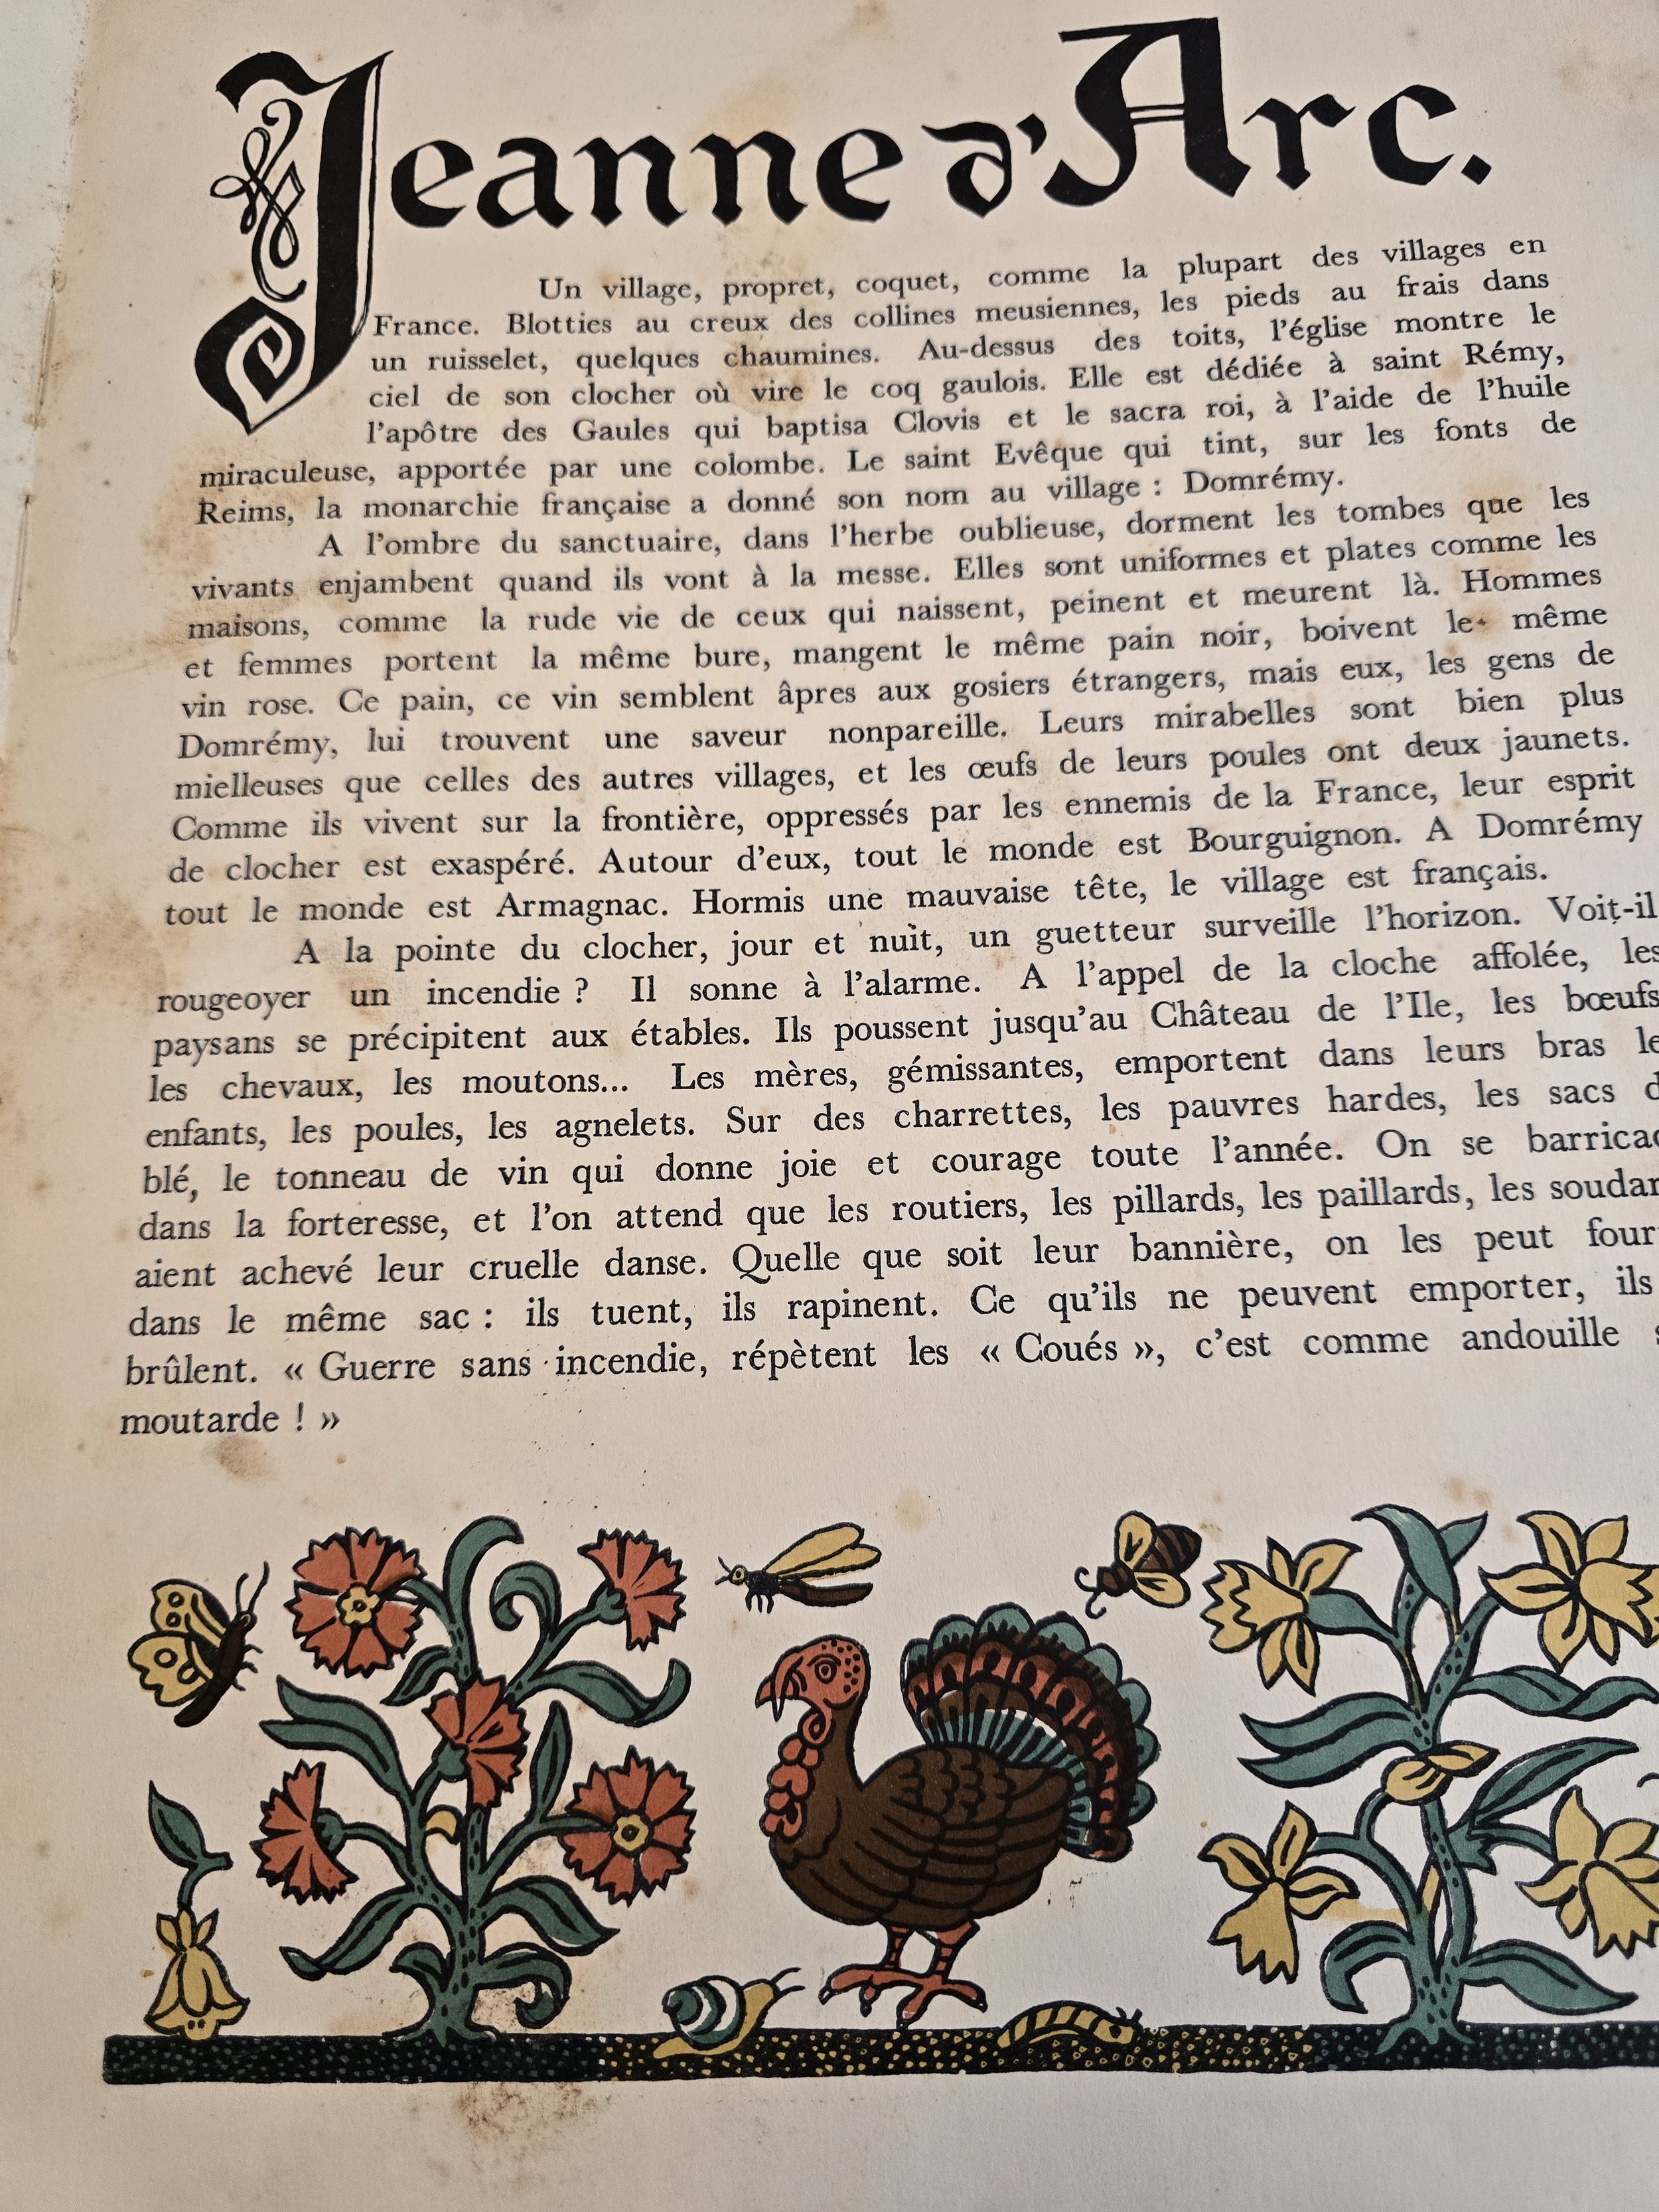 Jeanne d'Arc.
Un village, propret, coquet, comme la plupart des villages en
France. Blotties au creux des collines meusiennes, les pieds au frais dans
un ruisselet, quelques chaumines. Au-dessus des toits, l'église montre le
ciel de son clocher où vire le coq gaulois. Elle est dédiée à saint Rémy,
l'apôtre des Gaules qui baptisa Clovis et le sacra roi, à l'aide de l'huile
miraculeuse, apportée par une colombe. Le saint Evêque qui tint, sur les fonts de
Reims, la monarchie française a donné son nom au village : Domrémy.
A l'ombre du sanctuaire, dans l'herbe oublieuse, dorment les tombes que les
vivants enjambent quand ils vont à la messe. Elles sont uniformes et plates comme les
maisons, comme la rude vie de ceux qui naissent, peinent et meurent là. Hommes
et femmes portent la même bure, mangent le même pain noir, boivent le même
vin rose. Ce pain, ce vin semblent âpres aux gosiers étrangers, mais eux, les gens de
Domrémy, lui trouvent une saveur nonpareille. Leurs mirabelles sont bien plus
mielleuses que celles des autres villages, et les œufs de leurs poules ont deux jaunets.
Comme ils vivent sur la frontière, oppressés par les ennemis de la France, leur esprit
de clocher est exaspéré. Autour d'eux, tout le monde est Bourguignon. A Domrémy
tout le monde est Armagnac. Hormis une mauvaise tête, le village est français.
A la pointe du clocher, jour et nuit, un guetteur surveille l'horizon. Voit-il
rougeoyer un incendie ? Il sonne à l'alarme. A l'appel de la cloche affolée, les
paysans se précipitent aux étables. Ils poussent jusqu'au Château de l'Ile, les bœufs
les chevaux, les moutons... Les mères, gémissantes, emportent dans leurs bras
enfants, les poules, les agnelets. Sur des charrettes, les pauvres hardes, les sacs
blé, le tonneau de vin qui donne joie et courage toute l'année. On se
dans la forteresse, et l'on attend que les routiers, les pillards, les paillards, les
aient achevé leur cruelle danse. Quelle que soit leur bannière, on les peut
dans le même sac : ils tuent, ils rapinent. Ce qu'ils ne peuvent emporter, ils
brûlent. « Guerre sans incendie, répètent les « Coués », c'est comme andouille
moutarde ! »